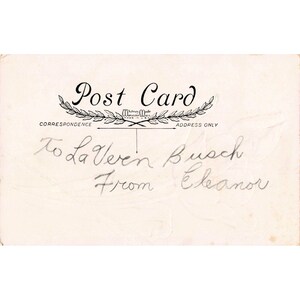 Post Card
CORRESPONDENCE ADDRESS ONLY
To LaVern Busch
From Eleanor